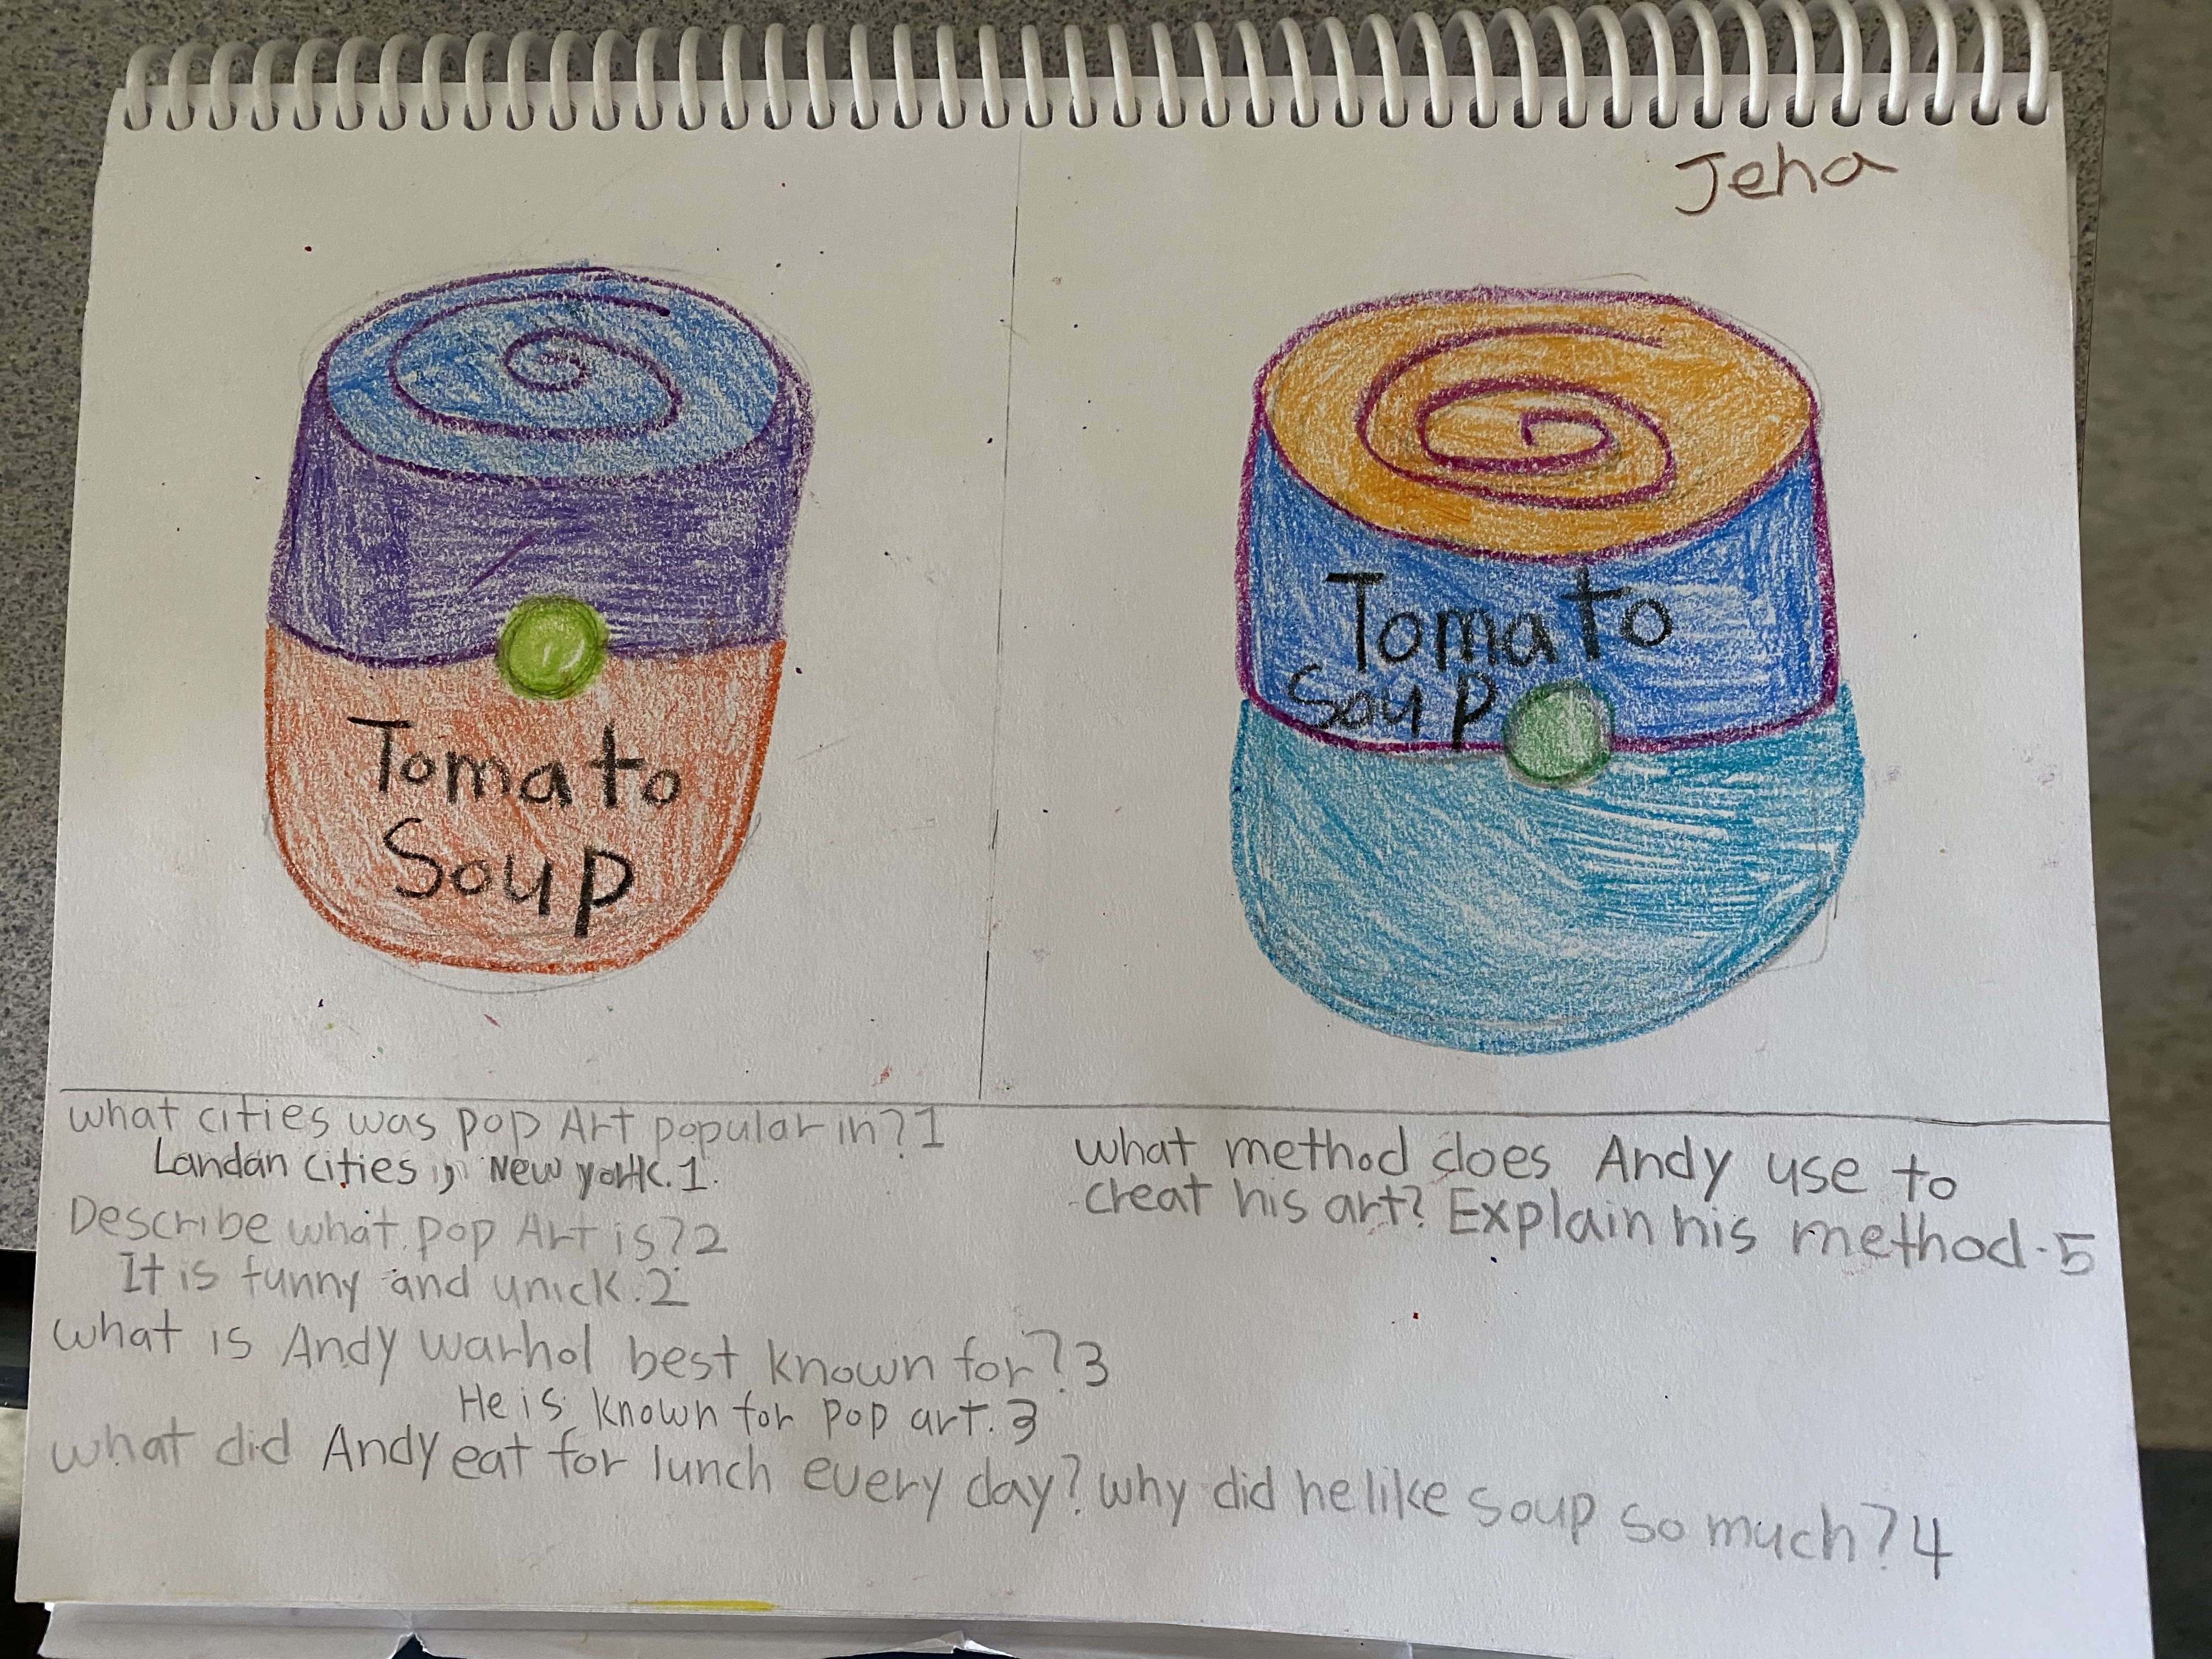 Jeha
Tomato
Soup
Tomato
Soup
what cities was pop Art popular in? 1
Landan cities, New york. 1.
Describe what pop Art is? 2
It is funny and unick. 2
what is Andy warhol best known for? 3
He is known for pop art. 3
what did Andy eat for lunch every day? why did he like soup so much? 4
what method does Andy use to
creat his art? Explain his method. 5